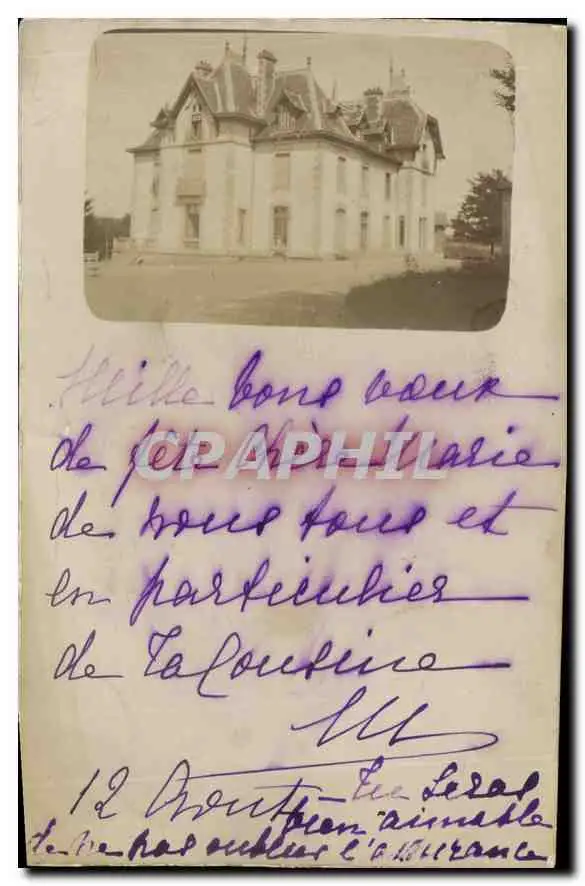 Mille bons vœux
de fête Chère Marie
CPAPHIL
de nous tous et
en particulier
de Ta Cousine
M
12 Aout Tu seras
bien aimable
de ne pas oublier l'assurance